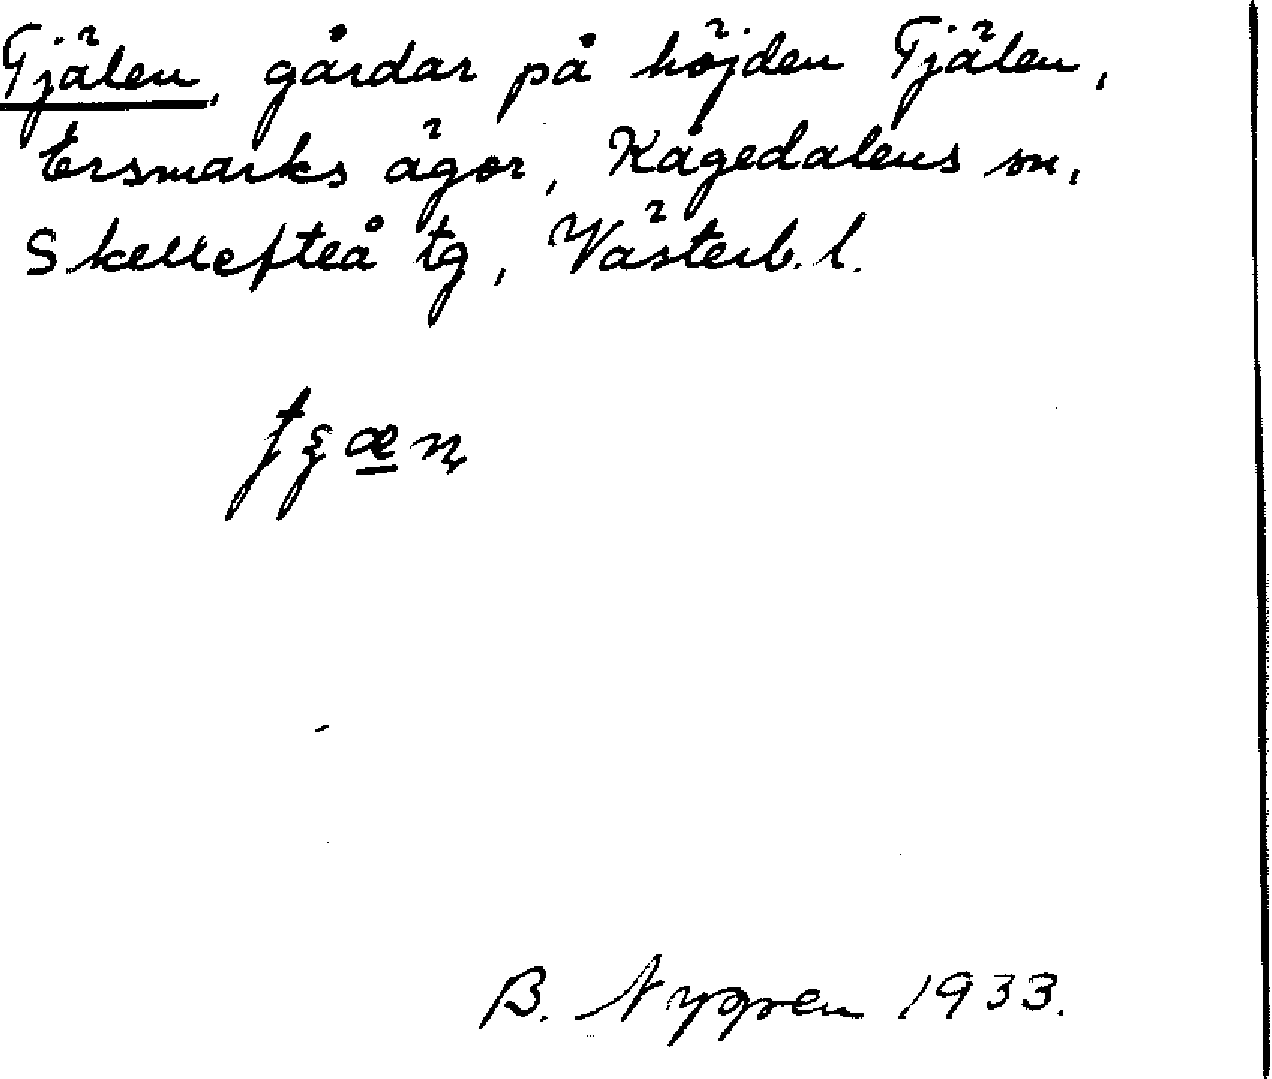 Tjälen, gårdar på höjden Tjälen,
Ersmarks ägor, Kågedalens sn,
Skellefteå tg, Västerb. l.
B. Nygren 1933.